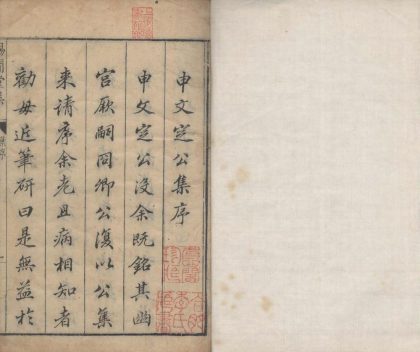 申文定公集序
申文定公沒余既銘其幽
宮厥嗣冏卿公復以公集
來請序余老且病相知者
勸毋近筆研曰是無益於